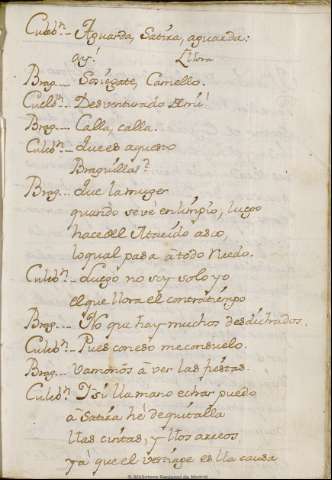 Culeb.n - Aguarda, Satira, aguarda:
ay! Llora
Brag. - Sosiegate, Camello.
Culeb.n - Desventurado de mi!
Brag. - Calla, calla.
Culeb.n - Que es aquesto
Braguillas?
Brag. - Que la muger
quando se vé en limpio, luego
hace del
lo qual pasa à todo ruedo.
Culeb.n - Luego no soy solo yo
el que llora el contratiempo
Brag. - No que hay muchos desdichados.
Culeb.n - Pues con eso me consuelo.
Brag. - Vamonos à ver las fiestas.
Culeb.n - Y si lla mano echar puedo
à Satira hé de quitalla
llas cintas, y llos arreos
ya que el es lla causa
© Biblioteca Regional de Madrid